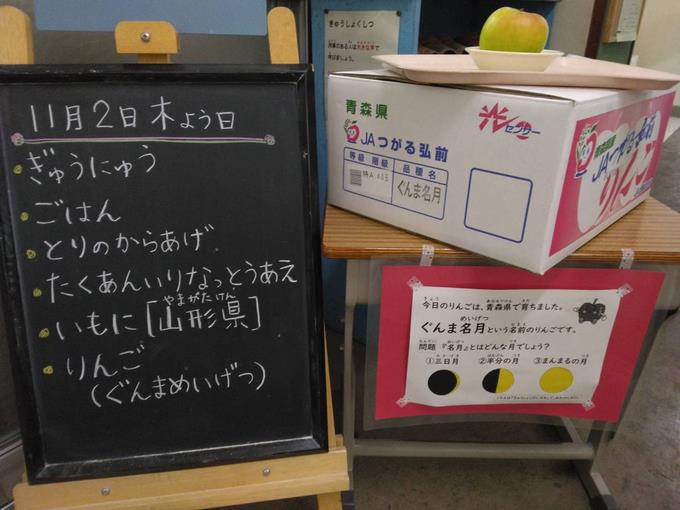 11月2日木よう日
ぎゅうにゅう
ごはん
とりのからあげ
たくあんいりなっとうあえ
いもに[山形県]
やまがたけん
りんご
(ぐんまめいげつ)
きゅうしょくしつ
用事のある人は大きな声で
呼びましょう。
青森県
光センター
JAつがる弘前
等級 階級 品種名
特A 40玉 ぐんま名月
青森県
JAつがる弘前
りんご
今日のりんごは、青森県で育ちました。
ぐんま名月という名前のりんごです。
問題 『名月』とはどんな月でしょう?
①三日月 ②半分の月 ③まんまるの月